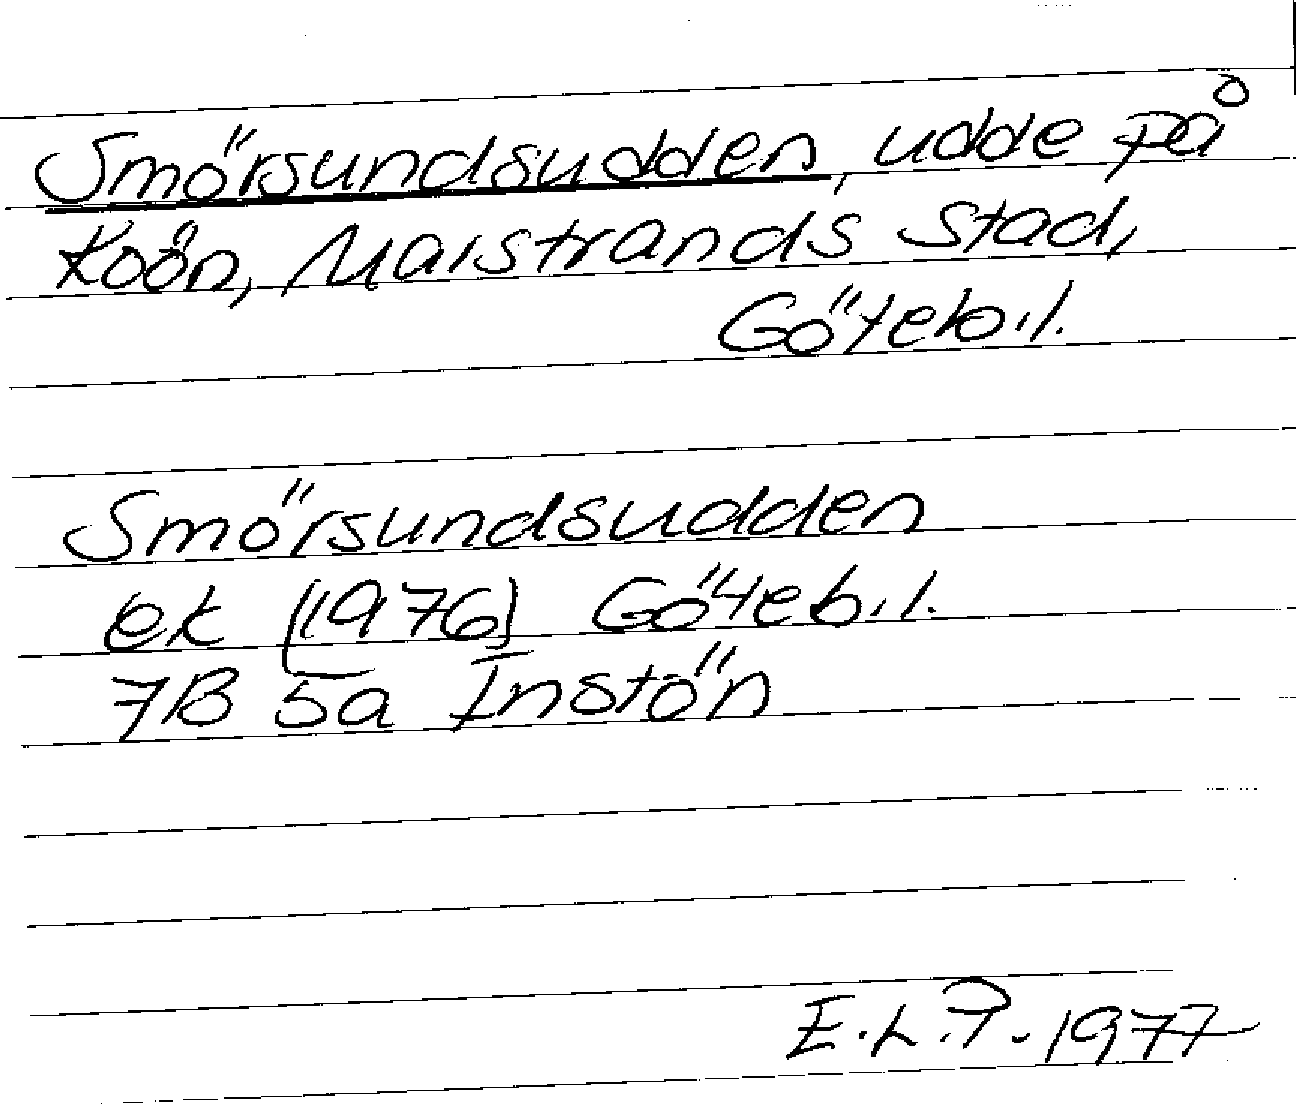 Smörsundsudden, udde på
Koön, Marstrands stad,
Göteb.l.
Smörsundsudden
ek [1976] Göteb.l.
7B 5a Instön
E.L.P. 1977